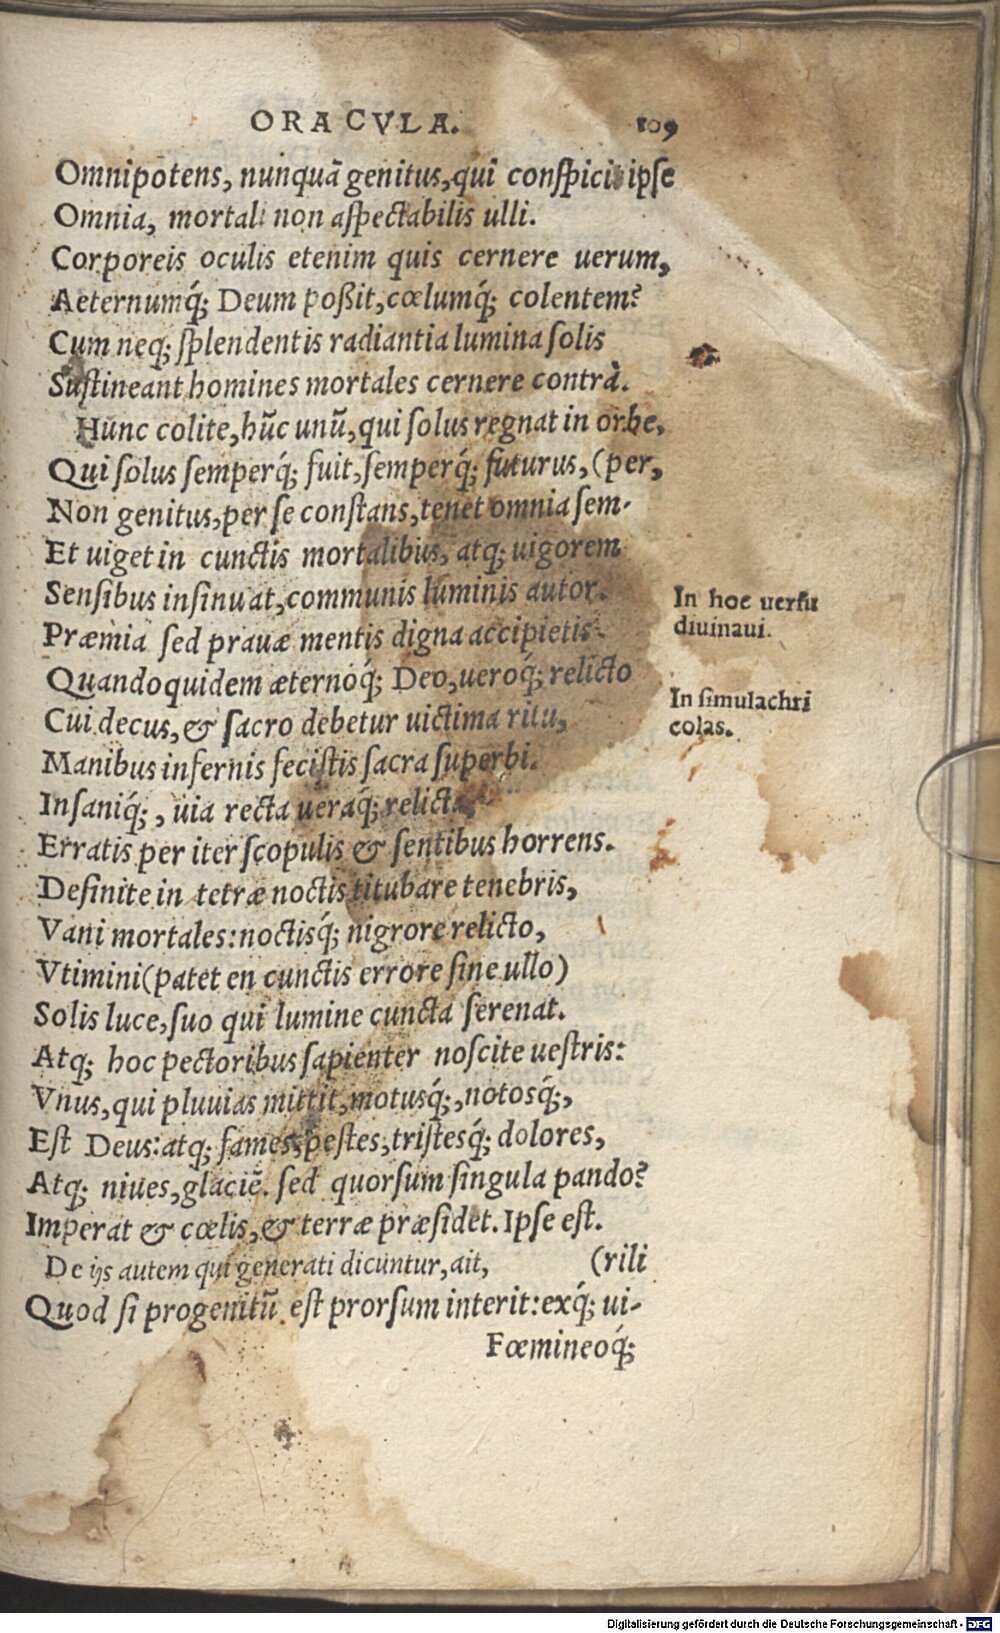 ORACVLA. 109
Omnipotens, nunquã genitus, qui conspicit ipse
Omnia, mortali non aspectabilis ulli.
Corporeis oculis etenim quis cernere uerum,
Aeternumq́; Deum poßit, cœlumq́; colentem?
Cum neq; splendentis radiantia lumina solis
Sustineant homines mortales cernere contrà.
Hunc colite, hũc unũ, qui solus regnat in orbe,
Qui solus semperq́; fuit, semperq́; futurus, (per,
Non genitus, per se constans, tenet omnia sem-
Et uiget in cunctis mortalibus, atq; uigorem
Sensibus insinuat, communis luminis autor.
Præmia sed prauæ mentis digna accipietis
Quandoquidem æternóq́; Deo, ueroq́; relicto
Cui decus, & sacro debetur uictima ritu,
Manibus infernis fecistis sacra superbi.
Insaniq́;, uia recta ueraq́; relicta,
Erratis per iter scopulis & sentibus horrens.
Definite in tetræ noctis titubare tenebris,
Vani mortales: noctisq́; nigrore relicto,
Vtimini (patet en cunctis errore sine ullo)
Solis luce, suo qui lumine cuncta serenat.
Atq; hoc pectoribus sapienter noscite uestris:
Vnus, qui pluuias mittit, motusq́;, notosq́;,
Est Deus: atq; fames, pestes, tristesq́; dolores,
Atq; niues, glaciẽ. sed quorsum singula pando?
Imperat & cœlis, & terræ præsidet. Ipse est.
De ijs autem qui generati dicuntur, ait, (rili
Quod si progenitũ est prorsum interit: exq́; ui-
Fœmineoq́;
In hoc uersu
diuinaui.
In simulachri
colas.
Digitalisierung gefördert durch die Deutsche Forschungsgemeinschaft - DFG